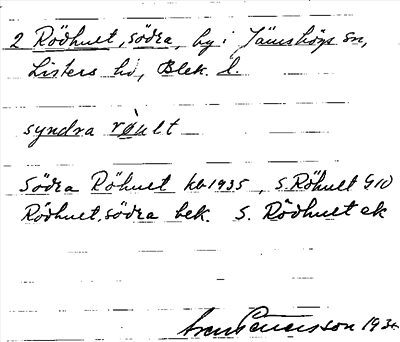 2 Rödhult, södra, by i Jämshögs sn,
Listers hd, Blek. l.
syndra rö̀ult
Södra Röhult kb 1935, S. Röhult GK
Rödhult, södra bek. S. Rödhult ek
Sven Benson 193